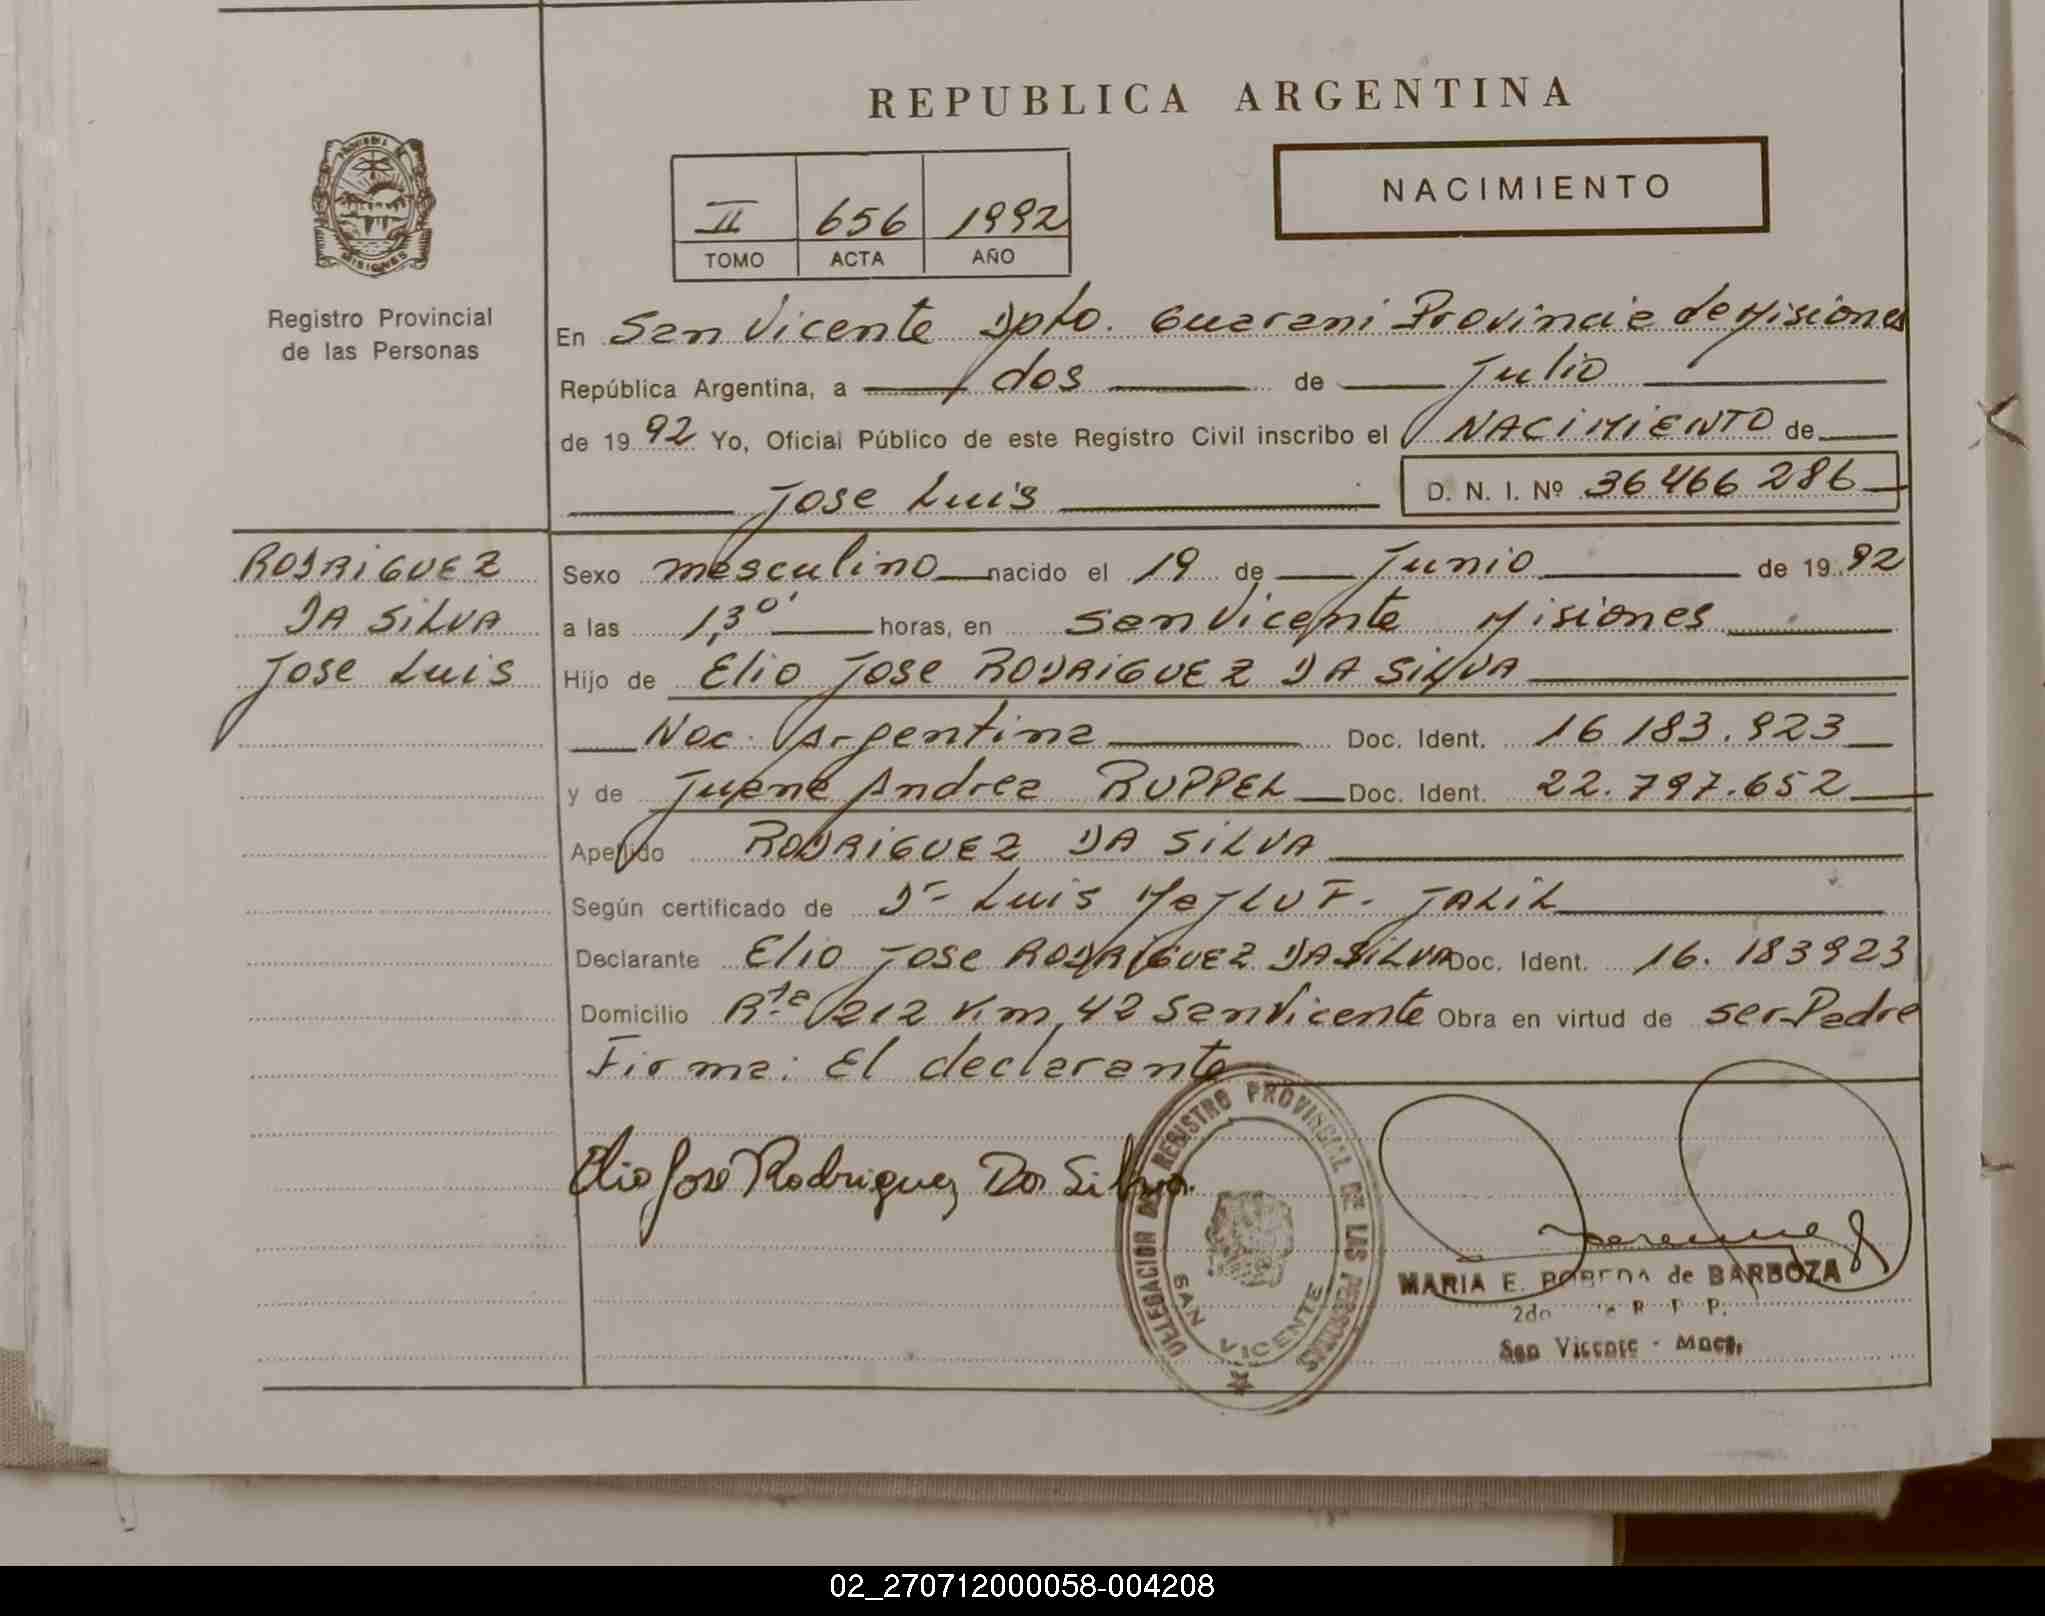 REPUBLICA ARGENTINA
NACIMIENTO
II 656 1992
TOMO ACTA AÑO
PROVINCIA DE MISIONES
Registro Provincial
de las Personas
En San Vicente Dpto. Guarani Provincia de Misiones
República Argentina, a dos de Julio
de 1992 Yo, Oficial Público de este Registro Civil inscribo el NACIMIENTO de
Jose Luis D. N. I. Nº 36466286
RODRIGUEZ
DA SILVA
Jose Luis
Sexo masculino nacido el 19 de Junio de 1992
a las 1,30' horas, en San Vicente Misiones
Hijo de Elio Jose RODRIGUEZ DA SILVA
Nac. Argentina Doc. Ident. 16 183.923
y de Andrea RUPPEL Doc. Ident. 22.797.652
Apellido RODRIGUEZ DA SILVA
Según certificado de Dr Luis F. JALIL
Declarante Elio Jose RODRIGUEZ DA SILVA Doc. Ident. 16.183923
Domicilio Rta 212 Km 42 San Vicente Obra en virtud de ser Padre
Firma: El declarante
Elio José Rodriguez Da Silva.
DELEGACION DEL REGISTRO PROVINCIAL DE LAS PERSONAS
SAN VICENTE
MARIA E. de BARBOZA
2do R. P. P.
San Vicente - Mnes.
02_270712000058-004208